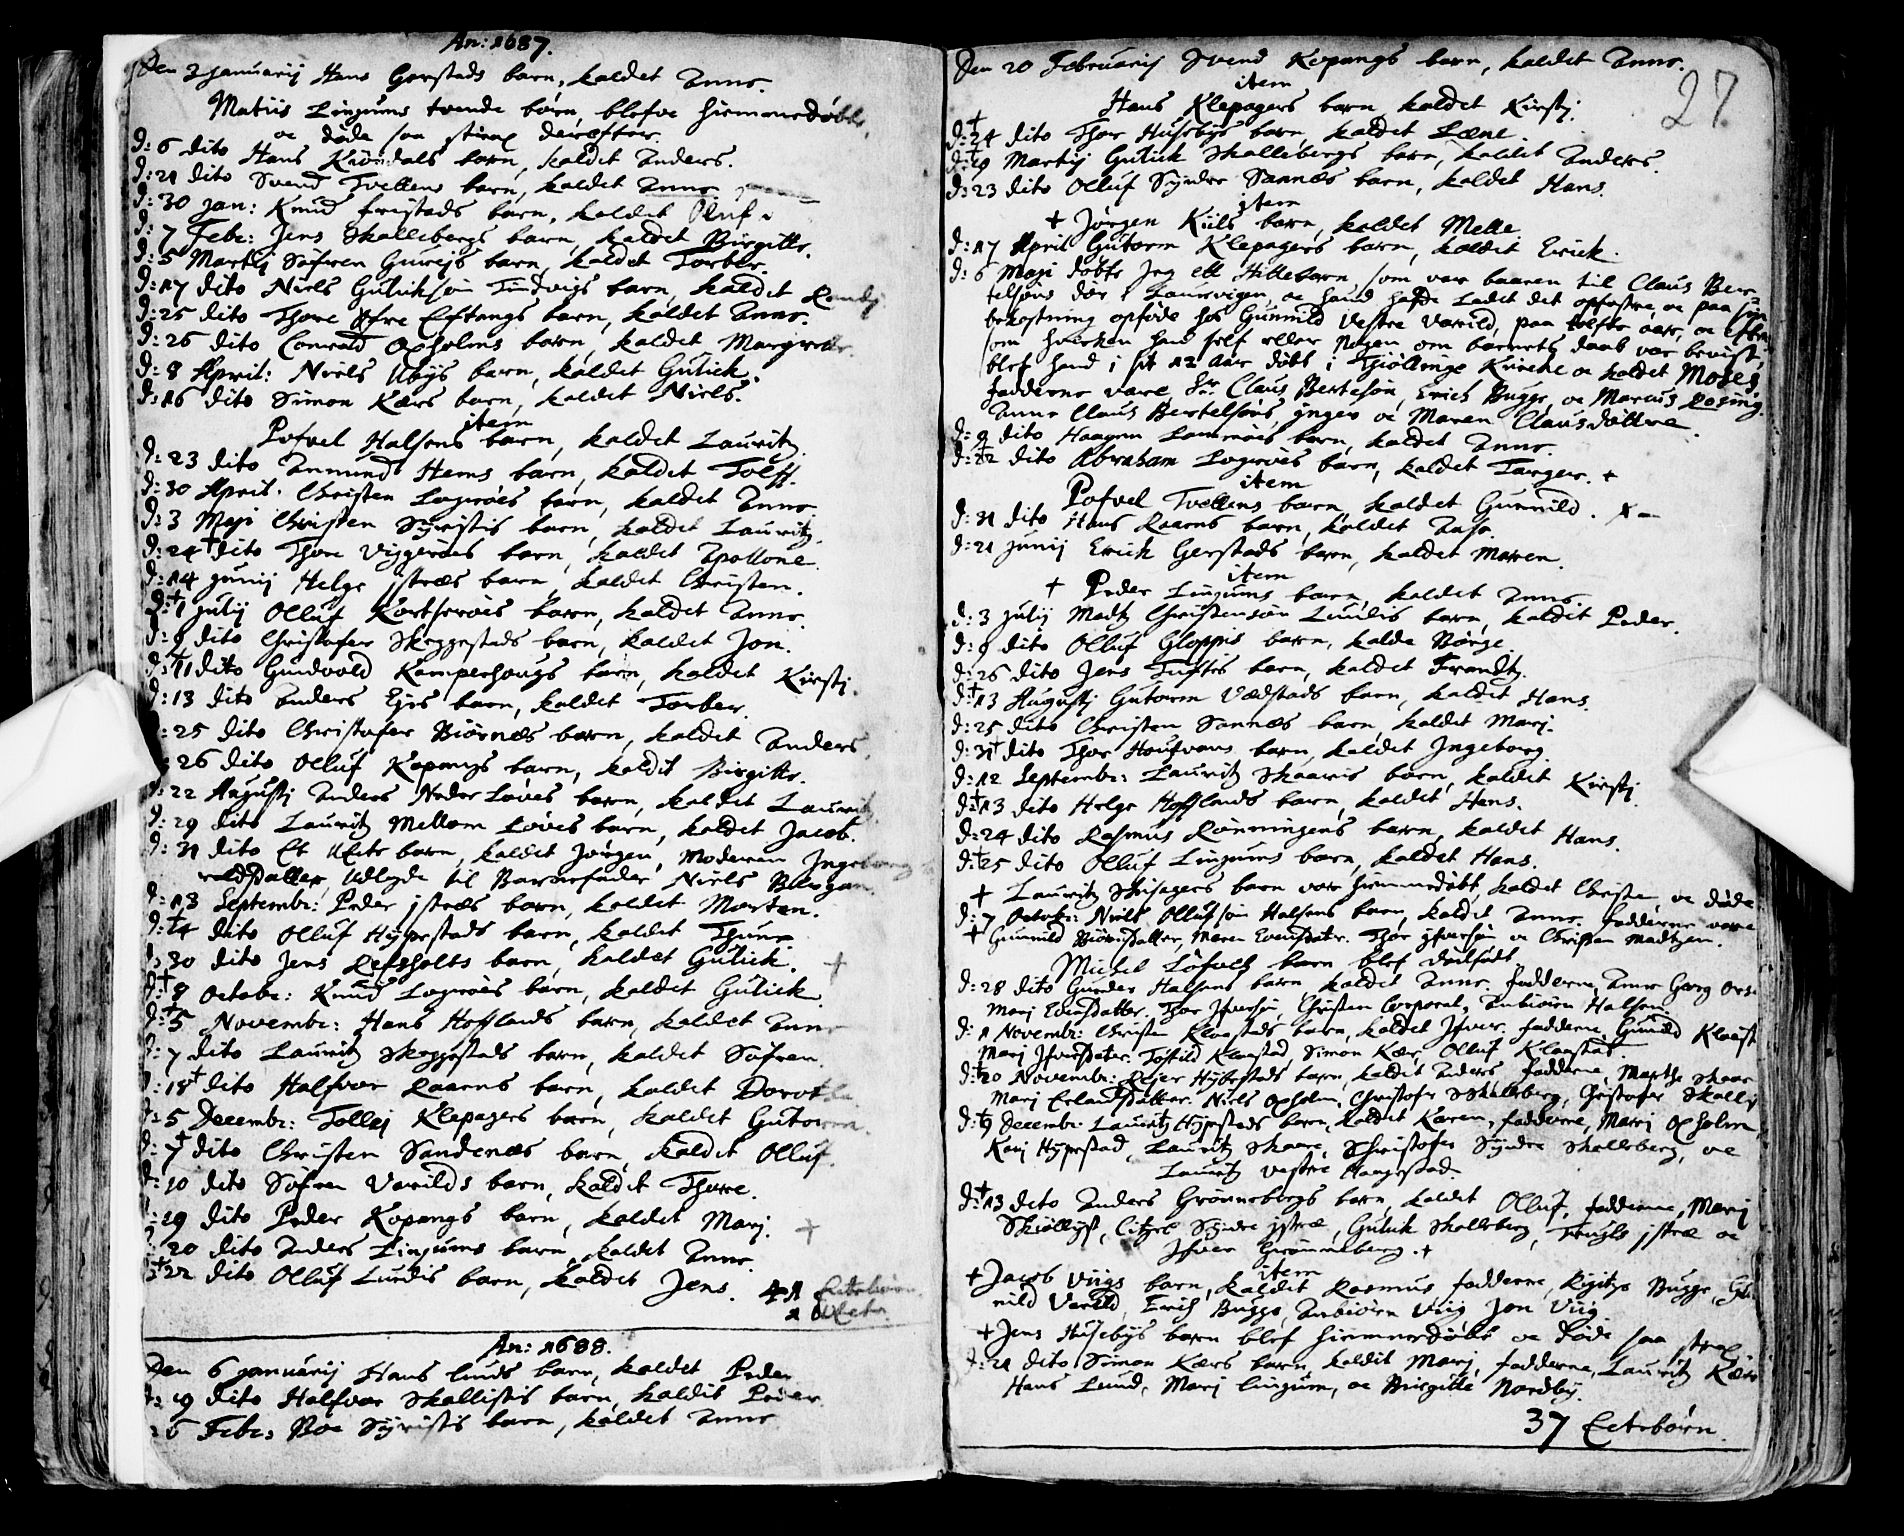 An: 1687.
Den 2 Januarij Hans Gerstads barn, kaldet Anne.
Matiis Lingums tvende børn, blefve hiemmedøbte,
oc døde saa strax derefter.
D: 6 dito Hans Kiøndals barn, kaldet Anders.
D: 21 dito Svend Tvetens barn, kaldet Anne
D: 30 Jan: Knud fristads barn, kaldet Oluf
D: 7 Febr: Jens Skallebergs barn, kaldet Birgitte.
D: 5 Martij Søfren Gureijs barn, kaldet Torber.
D: 17 dito Niels Gulichsøn Tindvigs barn, kaldet Randj
D: 25 dito Thore Øfre Eftangs barn, kaldet Anne.
D: 26 dito Conrad Oxholms barn, kaldet Margrete.
D: 8 April: Niels Ubijs barn, kaldet Gulich.
D: 16 dito Simon Kærs barn, kaldet Niels.
item
Pofvel Halsens barn, kaldet Lauritz.
D: 23 dito Anmund Hems barn, kaldet Toleff.
D: 30 April. Christen Lagerøes barn, kaldet Anne
D: 3 Maji Christen Syristis barn, kaldet Lauritz.
D: 24 † dito Thore Viggerøes barn, kaldet Apollone.
D: 14 Junij Helge Istræs barn, kaldet Christen.
D: † 1 Julij Olluf Kortserøes barn, kaldet Anne.
D: 9 dito Christofer Skeggestads barn, kaldet Jon.
D: † 11 dito Gundvold Kamperhougs barn, kaldet Kirstj.
D: 13 dito Anders Eijes barn, kaldet Torber.
: 25 dito Christofer Biørnæs barn, kaldet Anders.
: 26 dito Olluf Kopangs barn, kaldet Birgitte.
: 22 Augustj Anders Neder Løves barn, kaldet Lauritz
D: 29 dito Lauritz Mellom Løves barn, kaldet Jacob.
D: 31 dito Et Uecte barn, kaldet Jørgen, Moderen Ingeborg
datter, udlagde til Barnefader Niels
D: 13 Septembr: Peder Istræs barn, kaldet Morten.
D: † 4 dito Olluf Hybestads barn, kaldet Thure
D: 30 dito Jens Refsholts barn, kaldet Gulick. †
D: † 8 Octobr: Knud Lagerøes barn, kaldet Gulick.
D: † 5 Novembr: Hans Hofflands barn, kaldet Anne
D: 7 dito Lauritz Skeggestads barn, kaldet Søfren.
: 18 † dito Halfvor Raarns barn, kaldet Dorothe
: 5 Decembr: Tollej Klepagers barn, kaldet Gutorm.
: 7 † dito Christen Sandenæs barn, kaldet Olluf.
: 10 dito Søfren Varilds barn, kaldet Thorre.
: 19 dito Peder Kopangs barn, kaldet Marj. †
: 20 dito Anders Lingums barn, kaldet Anne.
† 22 dito Olluf Lundis barn, kaldet Jens.
41 Ectebørn.
1 Uecte.
An: 1688.
Den 6 Januarij Hans Lunds barn, kaldet Peder
: 19 dito Halfvor Skallistis barn, kaldet Peder
: 6 Febr: Boe Syristis barn, kaldet Anne
27
Den 20 Februarij Svend Kopangs barn, kaldet Anne.
item
Hans Klepagers barn, kaldet Kirstj.
D: † 24 dito Thor Husebys barn, kaldet Læne.
D: † 9 Martij Gulick Skallebergs barn, kaldet Anders.
D: 23 dito Olluf Syndre Sannæs barn, kaldet Hans.
item
† Jørgen Kiils barn, kaldet Mette.
D: 17 April Gutorm Klepagers barn, kaldet Erick.
D: 6 Maji døbte Jeg ett Hittebarn, som var baaren til Claus Ber-
telsøns dør i Laurvigen, oc hand hafde ladet det opfostre, oc paa sin
bekostning opføde hos Gunnild Vestre Varild, paa tolfte aar, oc efter
som hverken hand self eller Nogen om barnets daab var bevist,
blef hand i sit 12 Aar døbt i Tiøllinge Kircke oc kaldet Moses,
fadderne vare, Hr: Claus Bertelsøn, Erich Bugge, oc Marcus Rosing,
Anne Claus Bertelsøns, Inger oc Maren Clausdøttre.
D: 9 dito Haagen Lamerøes barn, kaldet Anne.
D: † 22 dito Abraham Lagerøes barn, kaldet Targer. †
item
Pofvel Tvetens barn, kaldet Gunnild.
D: 31 dito Hans Raarns barn, kaldet Aase.
D: 21 Junij Erick Gerstads barn, kaldet Maren.
item
† Peder Lingums barn, kaldet Anne
D: 3 Julij Madtz Christensøn Lundis barn, kaldet Peder.
D: 9 dito Olluf Gloppis barn, kalde Børge.
D: 26 dito Jens Tufts barn, kaldet Frandtz.
D: † 13 Augustj Gutorm Vædstads barn, kaldet Hans.
D: 25 dito Christen Sannæs barn, kaldet Marj.
D: 31 † dito Thor Houfvans barn, kaldet Ingeborg.
D: 12 Septembr: Lauritz Skaaris barn, kaldet Kirstj.
D: † 13 dito Helge Hofflands barn, kaldet Hans.
D: 24 dito Rasmus Rønningens barn, kaldet Hans.
D: † 25 dito Olluf Lingums barn, kaldet Hans.
† Lauritz Skisagers barn var hiemmedøbt, kaldet Christen, oc døde
D: 7 Octobr: Niels Ollufsøn Halsens barn, kaldet Anne. Fadderne vare
† Gunnild Biørnsdatter, Maren Evensdater. Thor Ifversøn oc Christen Madtzen.
Michel Løfvelds barn blef dødfødt
D: 28 dito Gunder Halsens barn, kaldet Anne. fadderne, Anne Georg
Marj Evensdatter. Thor Ifversøn, Christen Corporal, Anbiørn Halsen.
D: 1 Novembr: Christen Klaastads barn, kaldet Ifver. fadderne, Gunild Klaast
Marj Ifversdater. Tostild Klaastad, Simon Kær, Olluf Klaastad.
D: † 20 Novembr: Rejer Hybestads barn, kaldet Anders fadderne, Marthe Skaar
Marj Erlandsdatter. Niels Oxholm, Christofer Skalleberg, Christofer Skallij
D: † 9 Decembr: Lauritz Hybestads barn, kaldet Karen, fadderne, Marrj Oxholm,
Karj Hybestad, Lauritz Skaare, Christofer Syndre Skalleberg, oc
Lauritz Vestre Haugestad.
D: † 13 dito Anders Grønnebergs barn, kaldet Olluf, fadderne, Marj
Skiøllyst, Citzel Syndre Istræ, Gulick Skalleberg, Truels Istræ oc
Ifver Grønneberg. †
item
† Jacob Viigs barn, kaldet Rasmus, fadderne, Rigitze Bugge, Gu
nild Varild, Erich Bugge, Anbiørn Viig Jon Viig
† Jens Husebys barn blef hiemmedøbt oc døde saa strax
D: 21 dito Simon Kærs barn, kaldet Marj, fadderne, Lauritz Kær
Hans Lund, Marj Lingum, oc Birgitte Nordby.
37 Ectebørn.